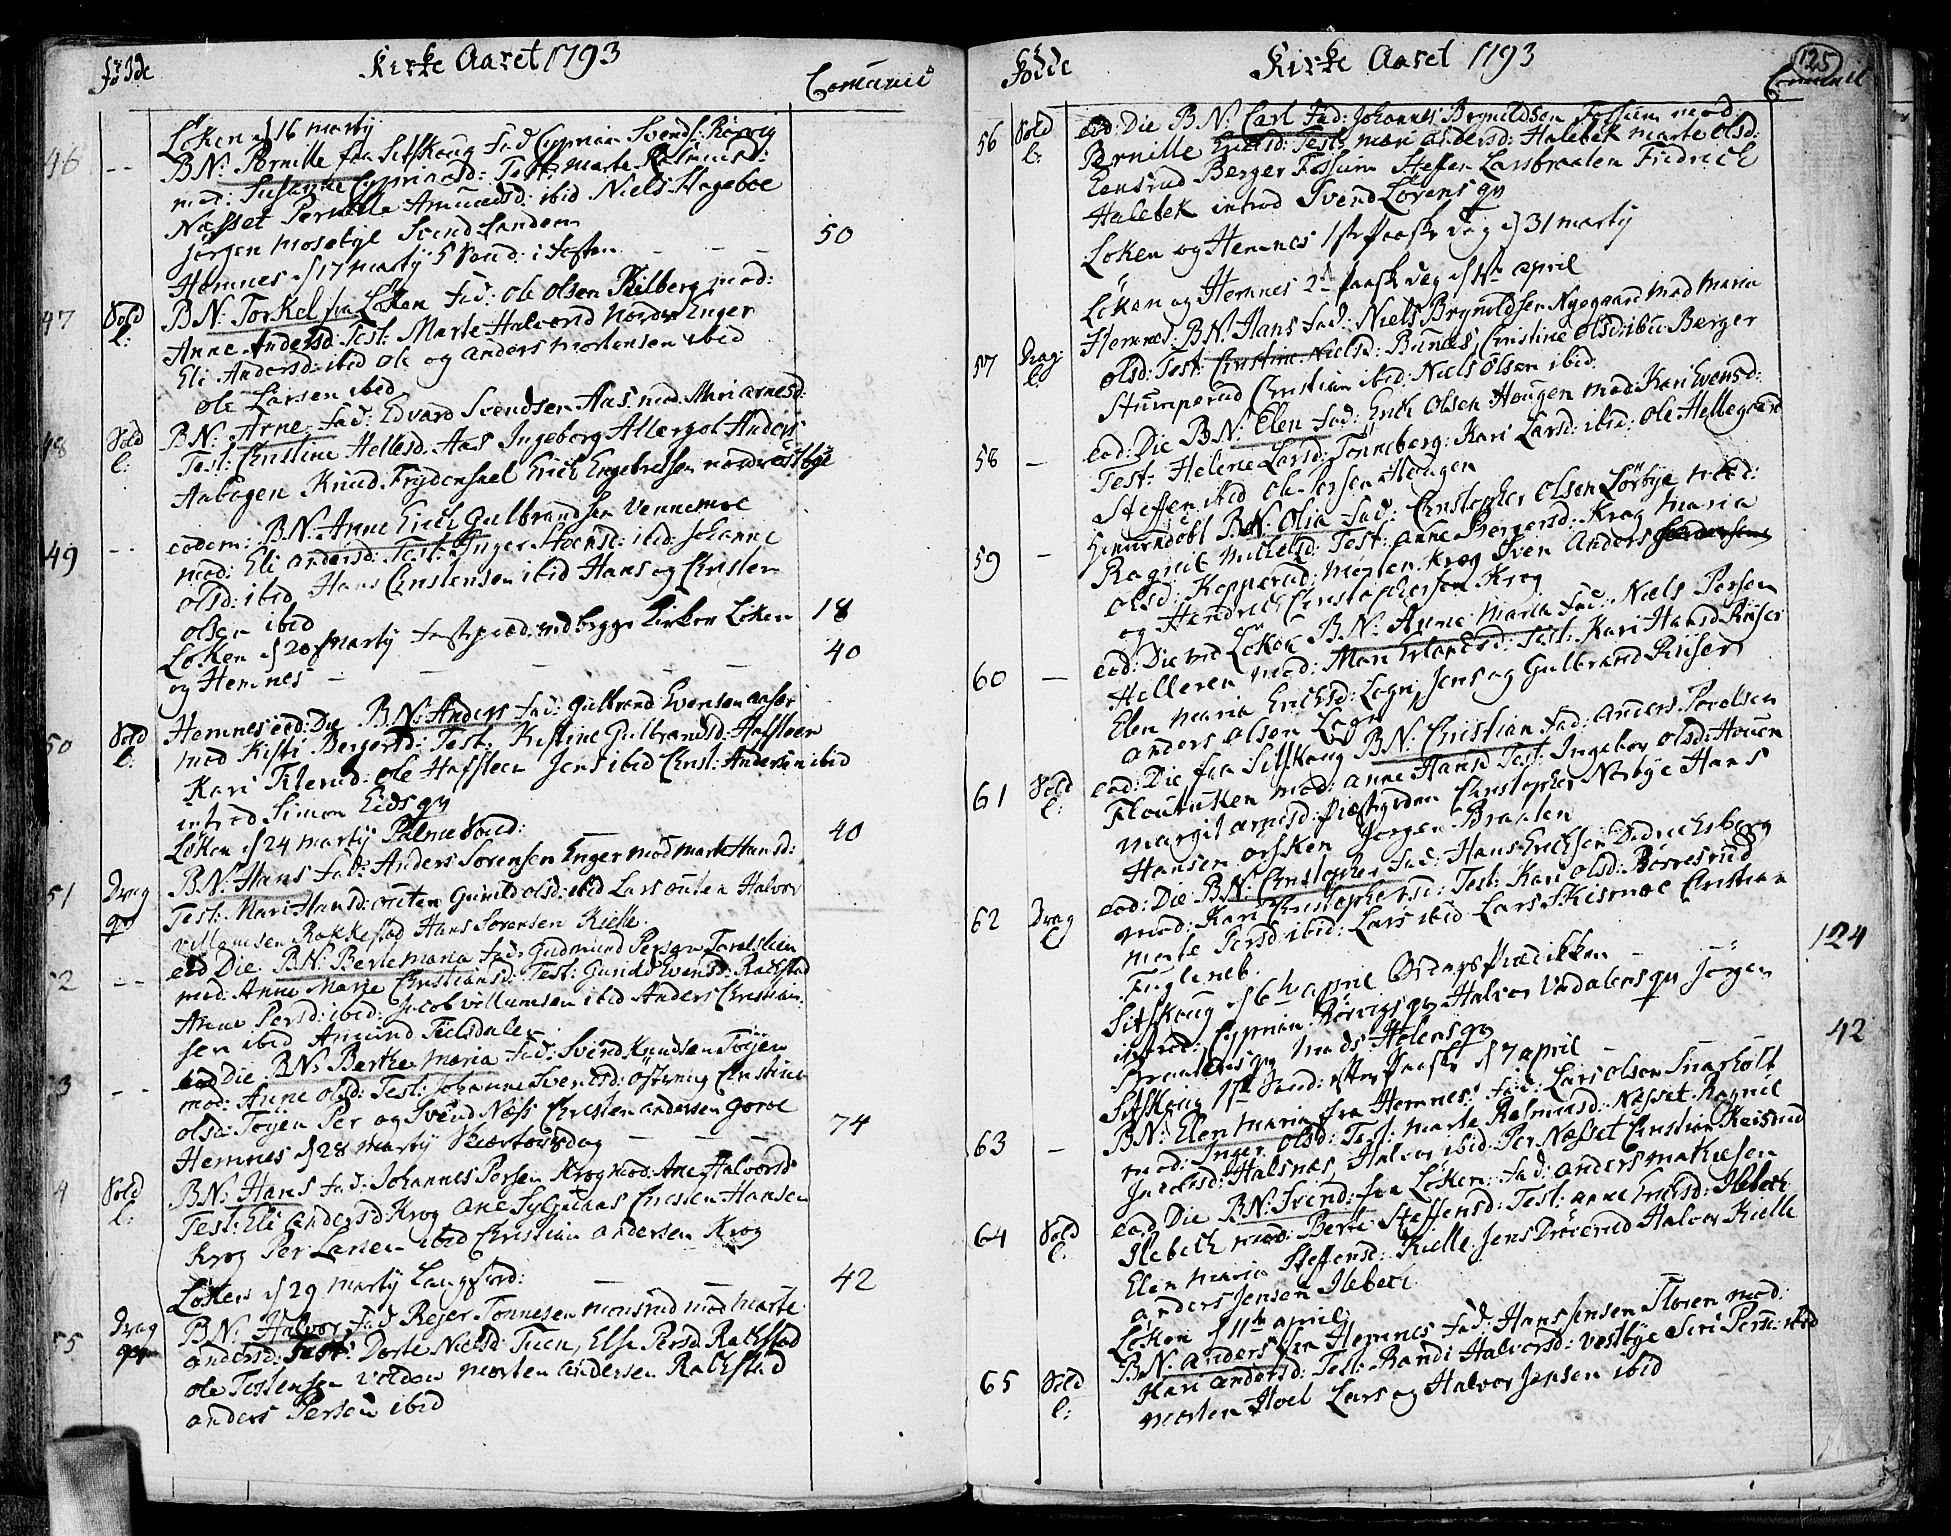 födde
Kirke Aaret 1793
Comunic
Löken d 16 marty
46 -- BN: Pernille fra Sitskoug fad Cyprian Svends: Rörvig
mod: Cypriansd: Test: Marte Rasmusd:
Næsset Pernille Amundsd: ibid Niels Hageboe
Jörgen Mosebye Svend Sandem
50
Hemnes d 17 marty 5 Sönd: i Fasten
47 Sold
l:
BN: Torkel fra Löken fad: Ole Olsen Kilberg mod:
Anne Andersd: Test: Marte Halvorsd Nordre Enger
Eli Andersd: ibid Ole og Anders Mortensen ibid
Ole Larsen ibid
48 Sold
l:
BN: Arne fad: Edvard Svendsen Aas mod: Mari Arnesd:
Test: Christine Hellesd. Aas Ingeborg Allergot Anders
Aabogen Knud Frydensael Erich Engebretsen nordre östbÿe
49 --
eodem: BN: Anne Erich Gulbrandsen Vennemoe
mod: Eli Andersd: Test: Inger Steensd: ibid: Johanne
Olsd: ibid Hans Christensen ibid Hans og Christen
Olsen ibid
18
Löken d 20 marty fastepræd: ved begge Kirker Löken
og Hemnes -
40
50 Sold
l:
Hemnes eod: Die BN: Anders fad: Gulbrand Evensen
mod Kisti Bergersd: Test: Kistine Gulbrandsd: Hafsteen
Kari Fiterud: Ole Hafsteen Jens ibid Christ: Andersen ibid
introd Simon Eids qv
Löken d 24 marty Palme Sönd:
40
51 Drag
qv
BN: Hans fad: Anders Sörensen Enger mod Marte Hansd:
Test: Mari Hansd: outen Gunild Olsd: ibid Lars outen Halvor
Villumsen Rakkestad Hans Sörensen Kielle
52 --
eod Die. BN: Berte Maria fad: Gudmund Persen Toralslien
mod: Anne Marie Christiansd: Test: Gunild Evensd: Rackstad
Anne Persd: ibid: Jacob Villumsen ibid Anders Christian
sen ibid Amund Fielsdalen
53 --
eod Die BN: Berthe Maria fad: Svend Knudsen Töyen
mod: Anne Olsd: Test: Johanne Svendsd: Christine
Olsd: Töyen Per og Svend Næss Christen Andersen
Hemnes d 28 marty Skiærtorsdag
74
54 Sold
l:
BN: Hans fad: Johannes Persen Krog mod: Ane Halvorsd
Test: Eli Andersd Krog Ane Christen Hansen
Krog Per Larsen ibid Christian Andersen Krog
Löken d 29 marty Langfred:
42
55 Drag
qv
BN: Halvor fad Rejer Tönnesen Monsrud mod Marte
Andersd: Test: Dorte Nielsd: Tuen, Else Persd Rackstad
Ole Tostensen Vildou Morten Andersen Rackstad
Anders Persen ibid
födde
Kirke Aaret 1793
125
Comunic
56 Sold
l:
eod: Die BN: Carl fad: Johannes Brynildsen Fossum mod:
Pernille Test: Mari Andersd: Halebek Marte Olsd:
Berger Fossum Steffen Larsbraaten Fridrich
Halebek introd Svend Lörens qv
Löken og Hemnes 1ste Paaske Dag d 31 marty
Löken og Hemnes 2d Paaske Dag d 1te april
57 Drag
l:
Hemnes: BN: Hans fad: Niels Brynildsen Nygaard mod Maria
Olsd: Test: Christine Nielsd: Bunæs, Christine Olsd: ibid: Berger
Stumperud Christian ibid: Niels Olsen ibid.
58 -
eod: Die BN: Elen fad: Erich Olsen Hougen mod: Kari Evensd:
Test: Helene Larsd: Tönneberg: Kari Larsd: ibid: Ole Hellegaard
Steffen ibid Ole Hougen
59 -
Hjemmedöbt BN: Olia fad: Christopher Olsen Lörbye mod:
Ragnil Nillesd: Test: Anne Bergersd: Krog Maria
Olsd: Kopperud: Morten Krog Iver Anders
og Hendrich Christophersen Krog
60 -
eod: Die ved Löken BN: Anne Maria fad: Niels Persen
Helleren mod: Mari Erlandsd: Test: Kari Hansd Riiser
Elen Maria Erichsd: Logn, Jens og Gulbrand Riiser
Anders Olsen Logn
61 Sold
l:
eod: Die fra Sitskoug BN: Christian fad: Anders Torelsen
mod: Anne Hansd Test: Ingebor Olsd: Houen
Margit Arnesd: Christopher Norbye Hans
Hansen Jörgen Braaten
62 Drag
l
eod: Die BN: Christopher fad: Hans Erichsen
mod: Kari Christophersd: Test: Kari Olsd: Börresrud
Marte Persd: ibid: Lars ibid Lars Skismoe Christian
Fugleneb.
124
Sitskoug d 6te april Prædikken
introd: Cyprian Rörvigs qv Halvor qv Jörgen
Braatens qv Mads Helens qv
42
Sitskoug 1ste Sönd: efter Paaske d 7 april
63 -
BN: Elen Maria fra Hemnes: fad: Lars Olsen Snarholt
mod: Inger Olsd: Test: Marte Rasmusd: Næsset Ragnil
Halsnæs, Halvor ibid: Per Næsset Christian
64 Sold
l:
eod: Die BN: Svend: fra Löken: fad: Anders Mathiesen
Ilebech mod: Berte Steffensd: Test: Anne Erichsd: Ilebech
Elen Maria Steffensd: Kielle Jens Halvor Kielle
Anders Jensen Ilebech
Löken d 11te april:
65 Sold
l:
BN: Anders fra Hemnes fad: Hans Jensen Floren mod:
Kari Andersd: Test: Randi Halvorsd: Vestbye Siri Persd: ibid
Morten Hoel Lars og Halvor Jensen ibid